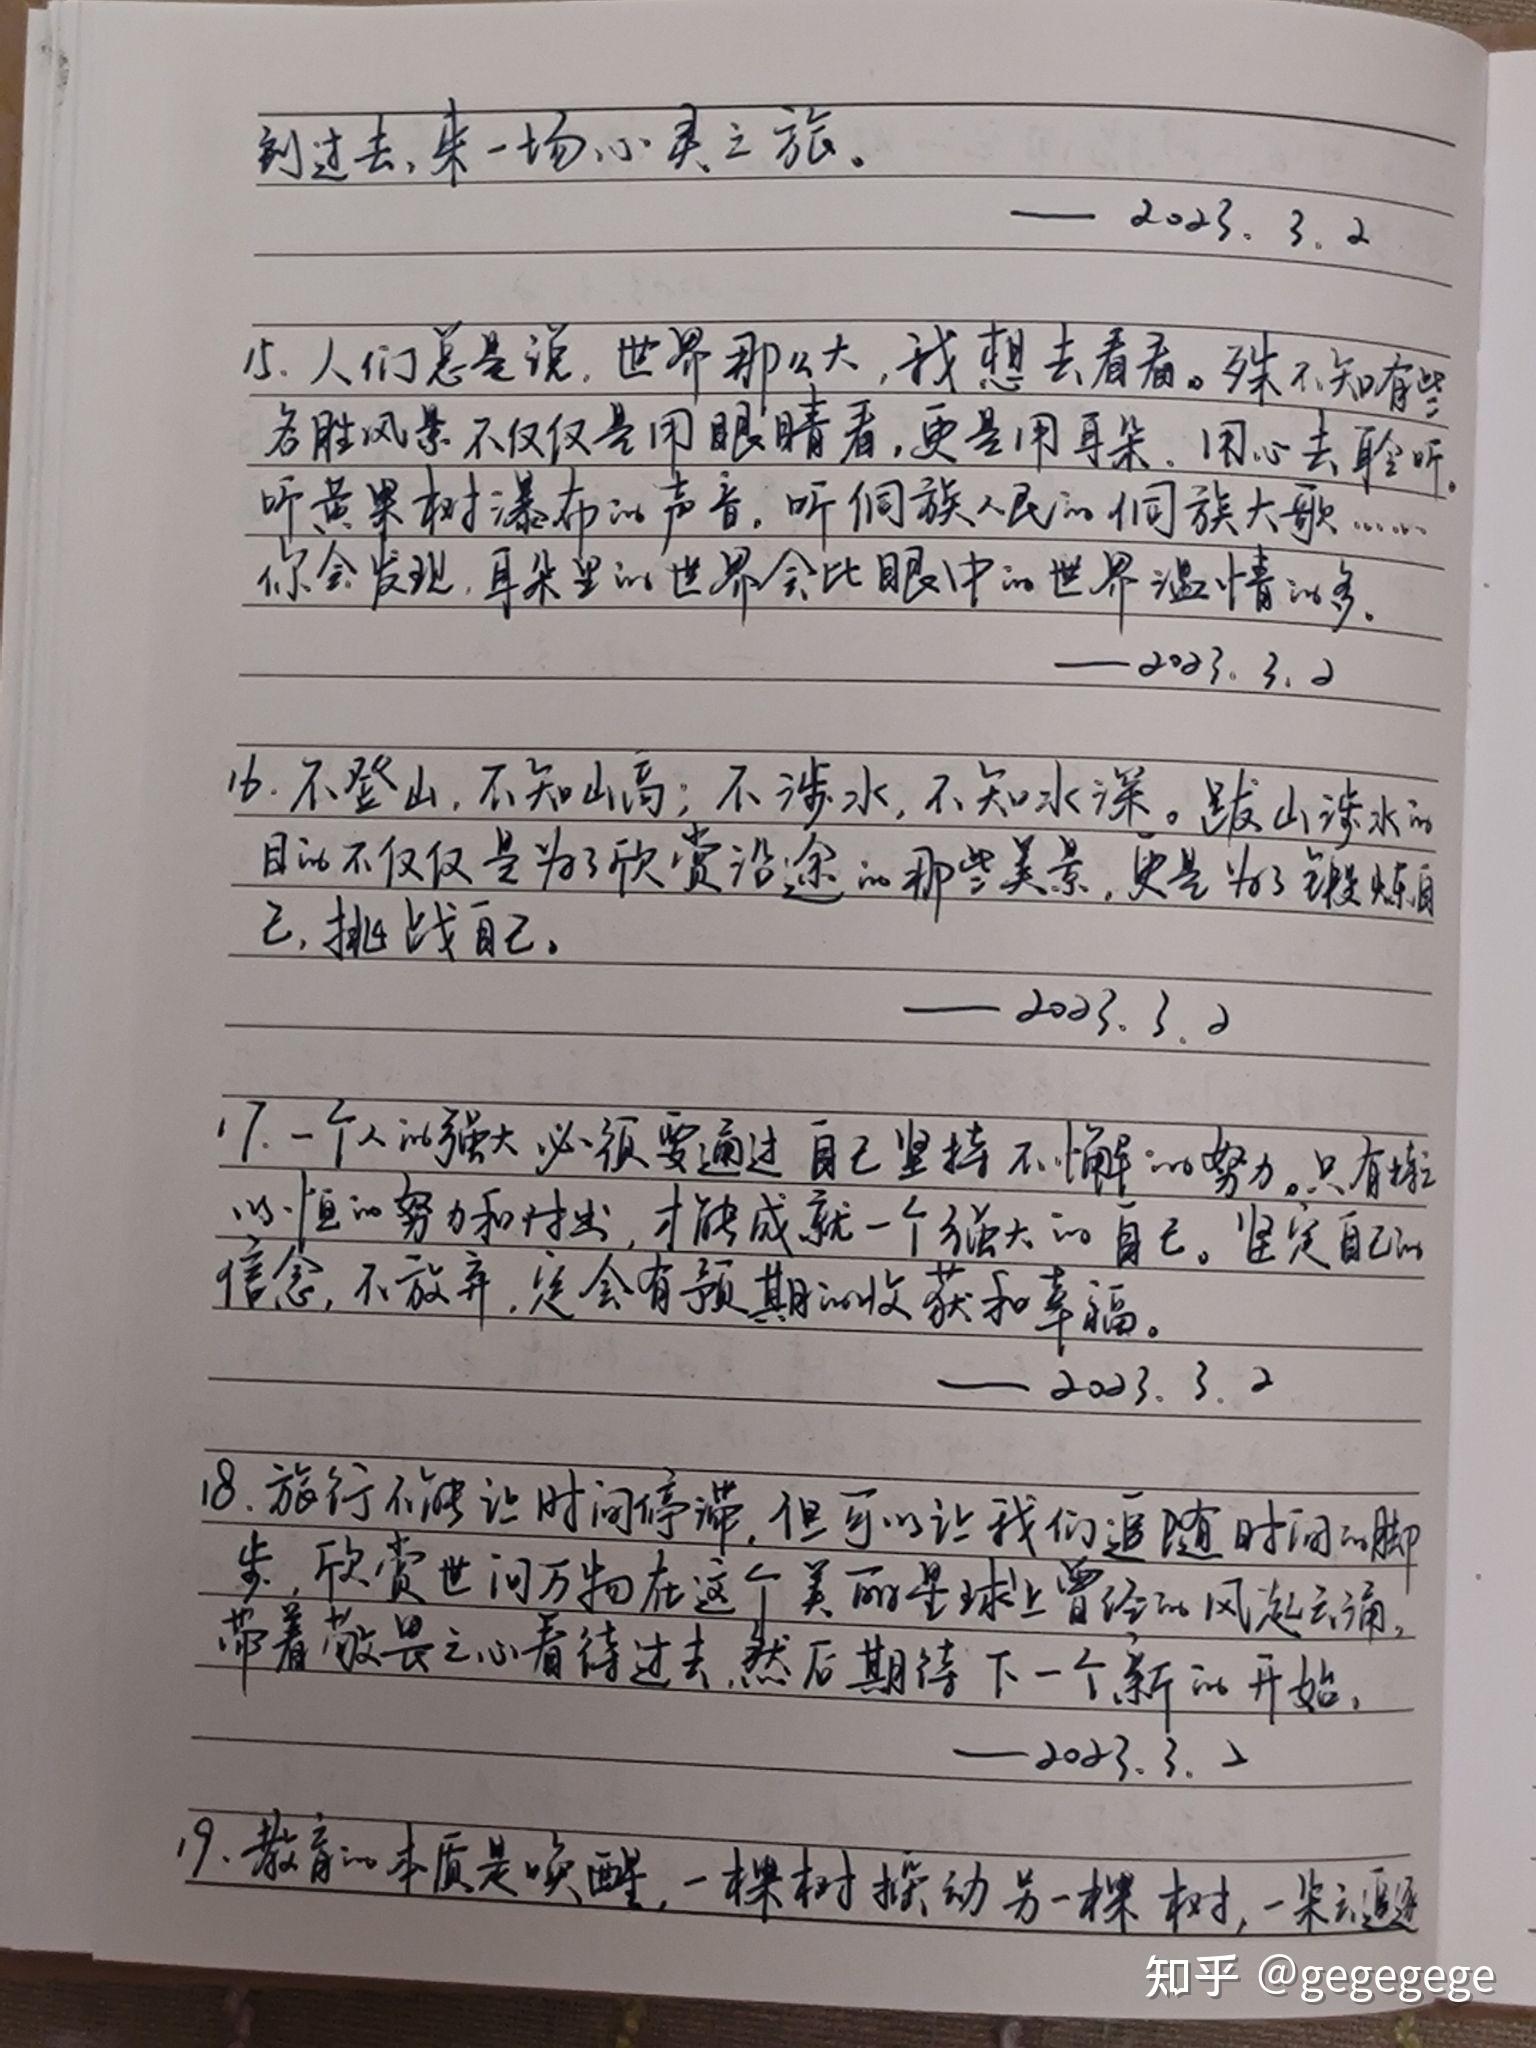 到过去，来一场心灵之旅。
—— 2023. 3. 2
15. 人们总是说，世界那么大，我想去看看。殊不知有些
名胜风景不仅仅是用眼睛看，更是用耳朵、用心去聆听。
听黄果树瀑布的声音，听侗族人民的侗族大歌……
你会发现，耳朵里的世界会比眼中的世界温情的多。
——2023. 3. 2
16. 不登山，不知山高；不涉水，不知水深。跋山涉水的
目的不仅仅是为了欣赏沿途的那些美景，更是为了锻炼自
己，挑战自己。
——2023. 3. 2
17. 一个人的强大必须要通过自己坚持不懈的努力。只有持之
以恒的努力和付出，才能成就一个强大的自己。坚定自己的
信念，不放弃，定会有预期的收获和幸福。
——2023. 3. 2
18. 旅行不能让时间停滞，但可以让我们追随时间的脚
步，欣赏世间万物在这个美丽星球上曾经的风起云涌，
带着敬畏之心看待过去，然后期待下一个新的开始。
——2023. 3. 2
19. 教育的本质是唤醒，一棵树摇动另一棵树，一朵云追逐
知乎 @gegegege